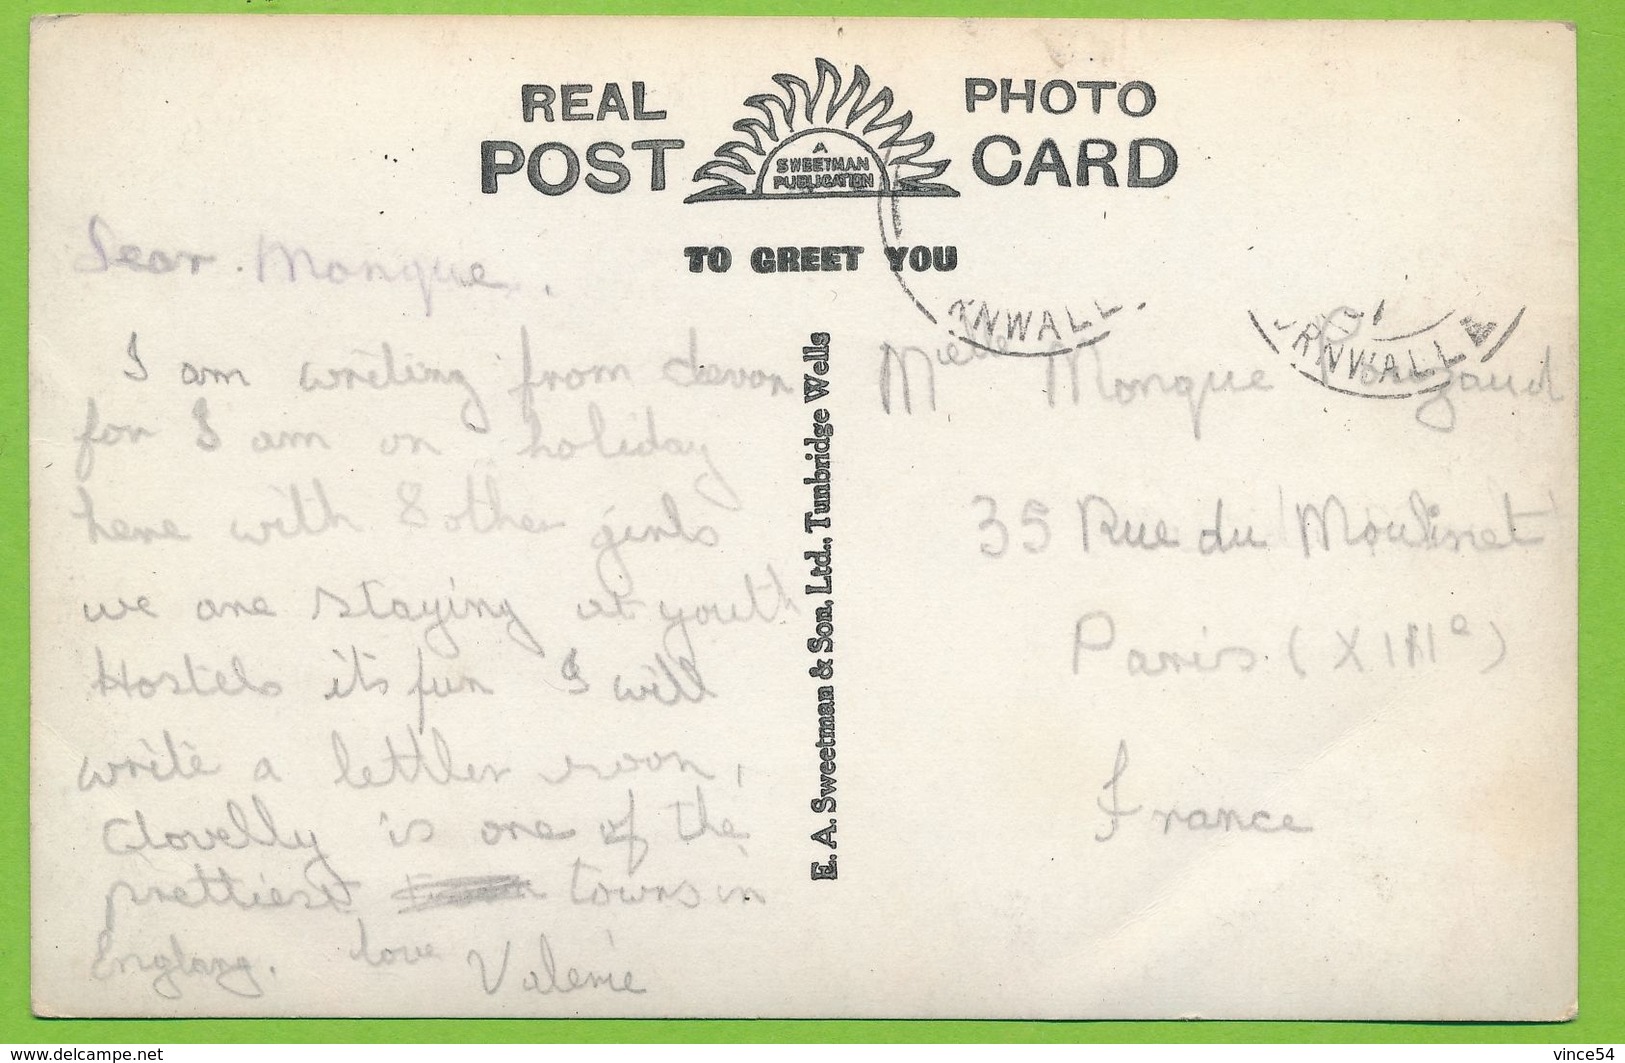 REAL PHOTO
POST CARD
A
SWEETMAN
PUBLICATION
TO GREET YOU
Dear Monque.
I am writing from devon
for I am on holiday
here with 8 other girls
we are staying at youth
Hostels it's fun I will
write a lettler soon,
Clovelly is one of the
prettiest towns in
England. love Valerie
E. A. Sweetman & Son, Ltd., Tunbridge Wells
RNWALL
RNWALL
Monque
35 Rue du Moulinet
Paris (XIIIe)
France
www.delcampe.net
vince54